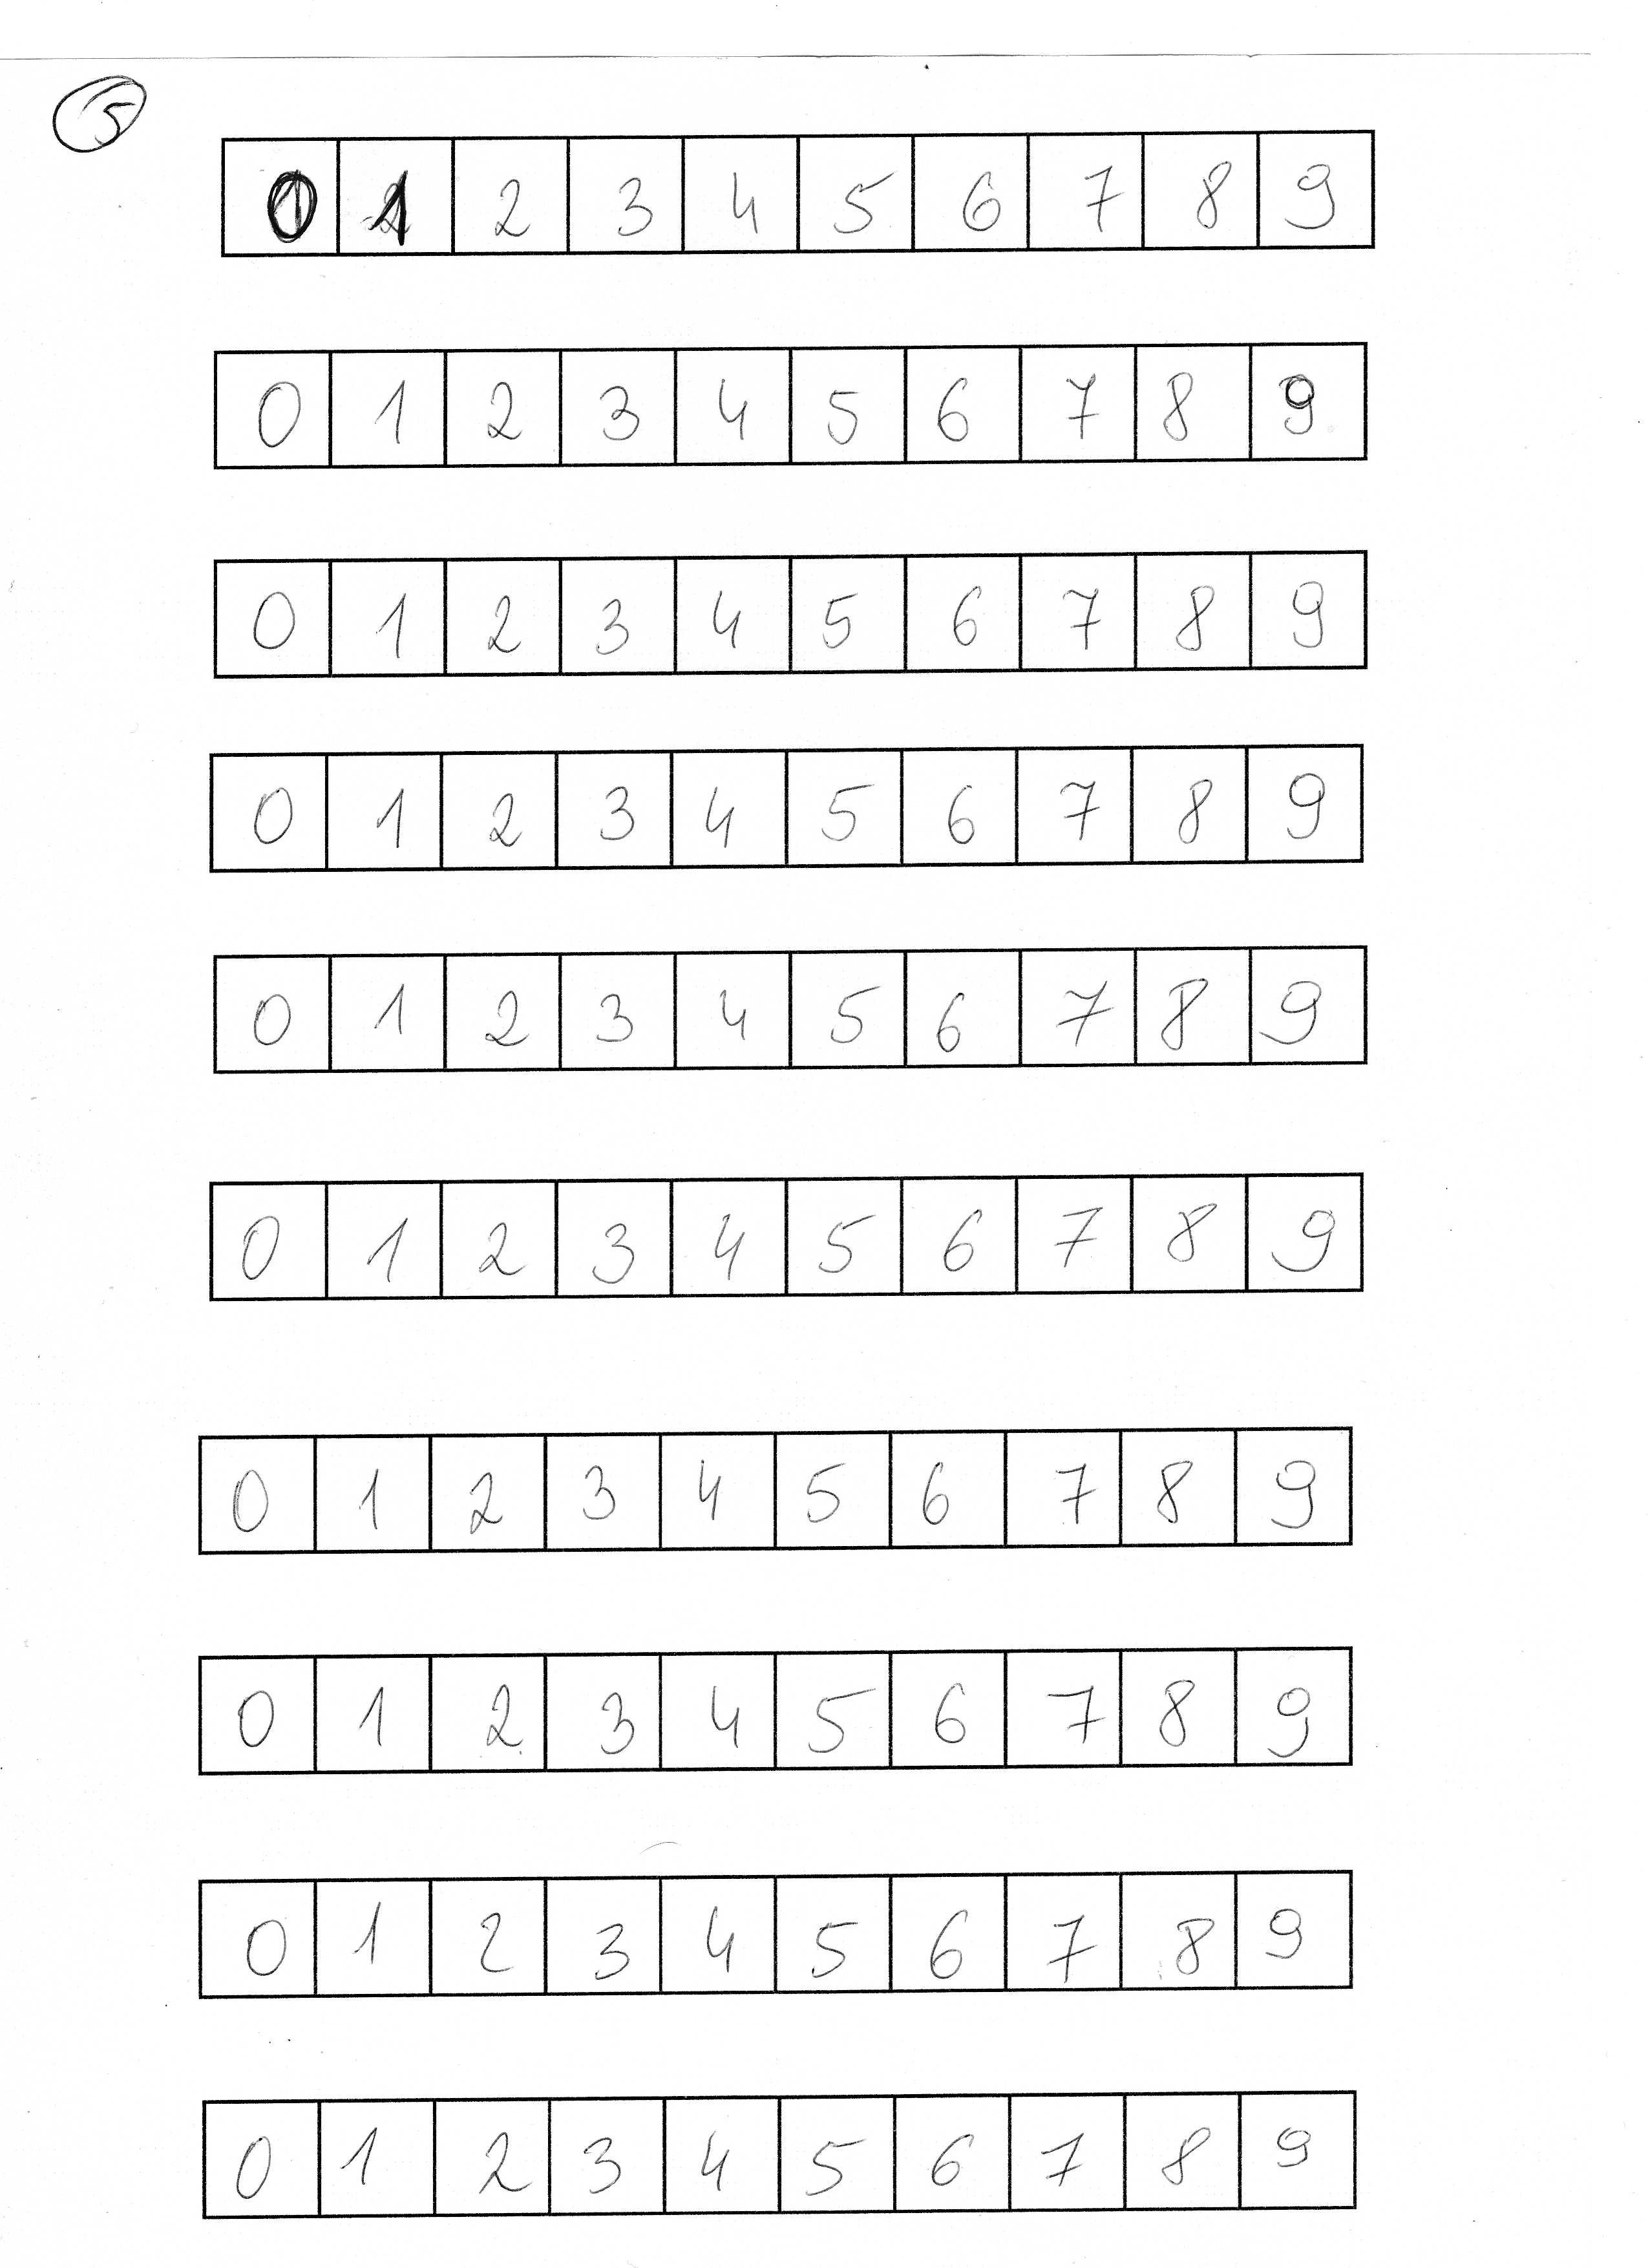 5
0 1 2 3 4 5 6 7 8 9
0 1 2 3 4 5 6 7 8 9
0 1 2 3 4 5 6 7 8 9
0 1 2 3 4 5 6 7 8 9
0 1 2 3 4 5 6 7 8 9
0 1 2 3 4 5 6 7 8 9
0 1 2 3 4 5 6 7 8 9
0 1 2 3 4 5 6 7 8 9
0 1 2 3 4 5 6 7 8 9
0 1 2 3 4 5 6 7 8 9